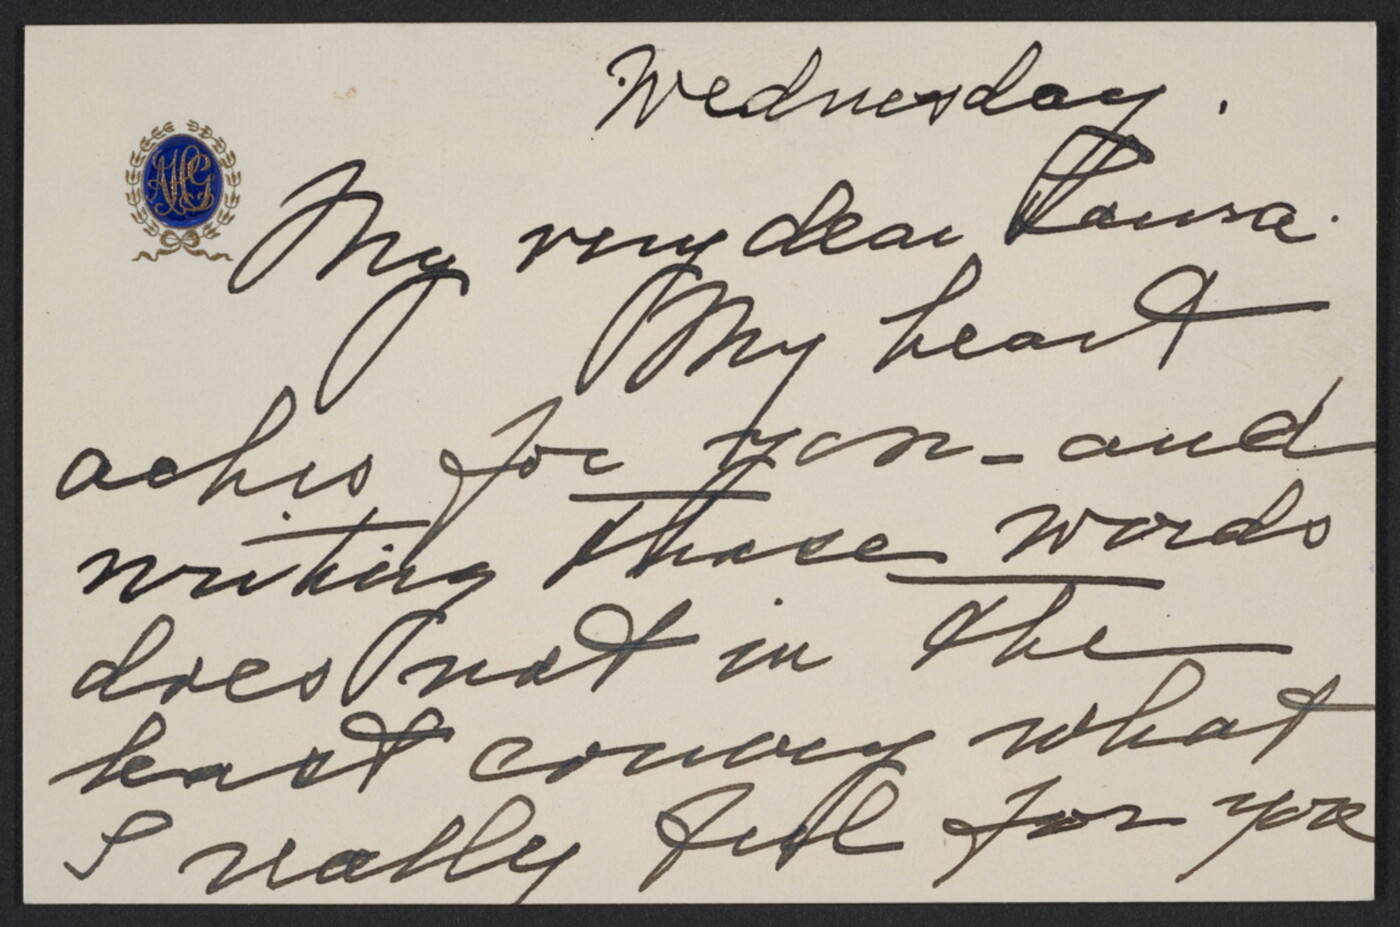 Wednesday.
My very dear Louisa.
My heart
aches for you - and
writing these words
does not in the
least convey what
I really feel for you